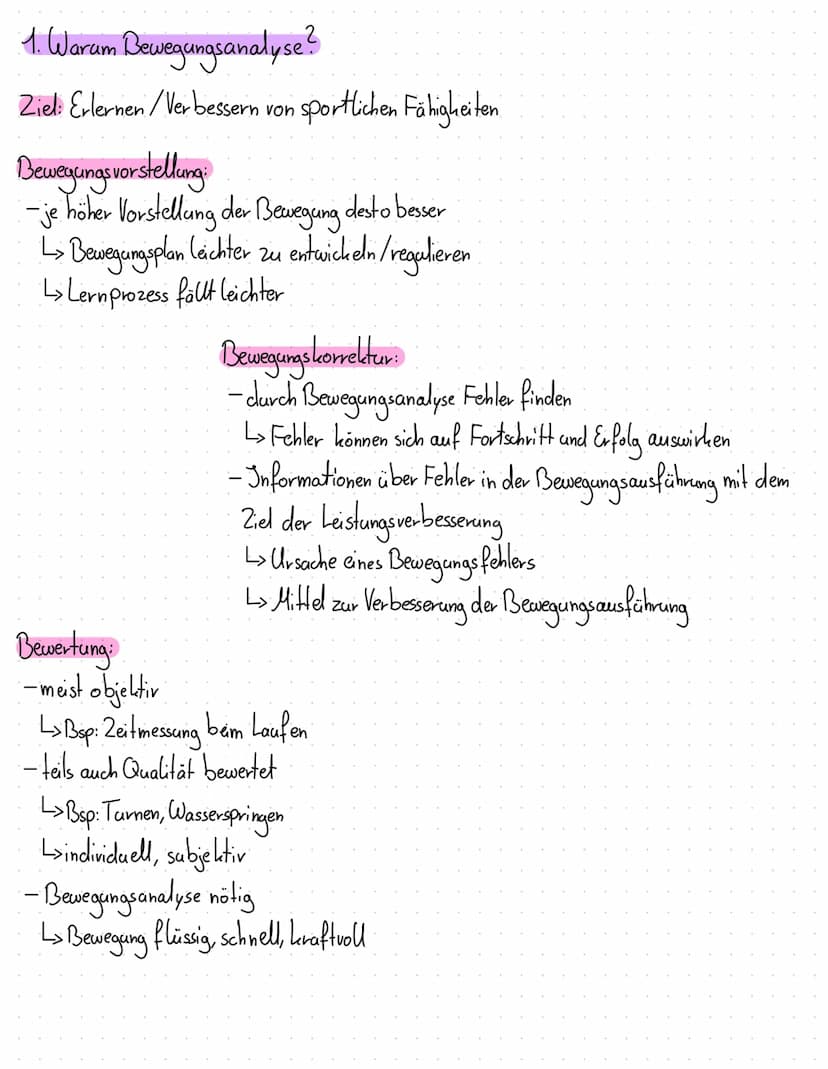 1. Warum Bewegungsanalyse?
Ziel: Erlernen/Verbessern von sportlichen Fähigkeiten
Bewegungsvorstellung:
- je höher Vorstellung der Bewegung desto besser
↳ Bewegungsplan leichter zu entwickeln/regulieren
↳ Lernprozess fällt leichter
Bewegungskorrektur:
- durch Bewegungsanalyse Fehler finden
↳ Fehler können sich auf Fortschritt und Erfolg auswirken
- Informationen über Fehler in der Bewegungsausführung mit dem
Ziel der Leistungsverbesserung
↳ Ursache eines Bewegungsfehlers
↳ Mittel zur Verbesserung der Bewegungsausführung
Bewertung:
- meist objektiv
↳ Bsp: Zeitmessung beim Laufen
- teils auch Qualität bewertet
↳ Bsp: Turnen, Wasserspringen
↳ individuell, subjektiv
- Bewegungsanalyse nötig
↳ Bewegung flüssig, schnell, kraftvoll